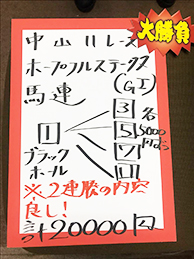 大勝負
中山11レース
ホープフルステークス
(GI)
馬連
1
ブラック
ホール
3
5
7
11
各
5000
円なり
※2連勝の内容
良し!
計20000円